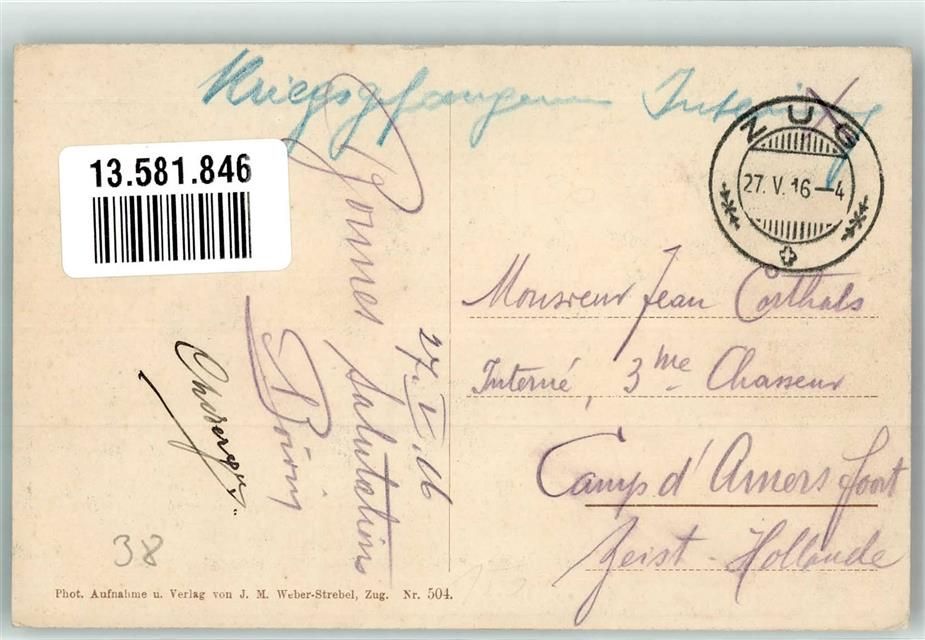 Kriegsgfangenen Interniy
13.581.846
ZUG
27. V. 16 - 4
27. V. 16
Bonnes
Salutations
Monsieur Jean Corthals
Interné, 3me Chasseur
Camp d'Amersfoort
Zeist - Hollande
38
Phot. Aufnahme u. Verlag von J. M. Weber-Strebel, Zug. Nr. 504.